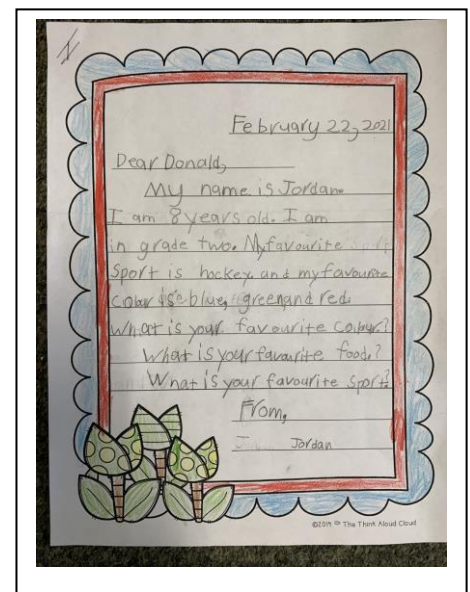 February 22, 2021
Dear Donald,
My name is Jordan.
I am 8 years old. I am
in grade two. My favourite
Sport is hockey, and my favourite
colour is blue, green and red.
What is your favourite colour?
What is your favourite food?
What is your favourite sport?
From,
Jordan
©2019 The Think Aloud Cloud